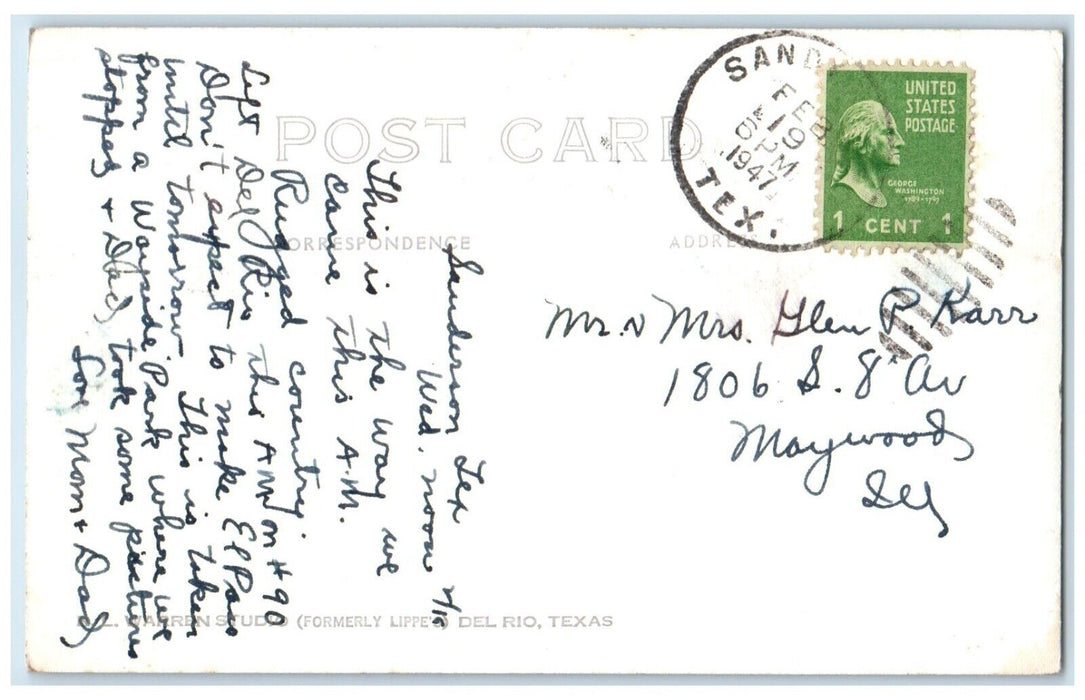 POST CARD
CORRESPONDENCE
ADDRESS
SAND
FEB
19
6 PM
1947
TEX.
UNITED
STATES
POSTAGE
GEORGE
WASHINGTON
1789-1797
1 CENT 1
Sanderson Tex
Wed. noon
This is the way we
came this A.M.
Rugged country.
Left Del Rio this AM on #90
Don't expect to make El Paso
until tomorrow. This is taken
from a Wayside Park where we
stopped & Dad took some pictures
Love Mom & Dad
Mr. & Mrs. Glen P. Karr
1806 S. 8" Av
Maywood
Ill
WARREN STUDIO (FORMERLY LIPPE'S) DEL RIO, TEXAS